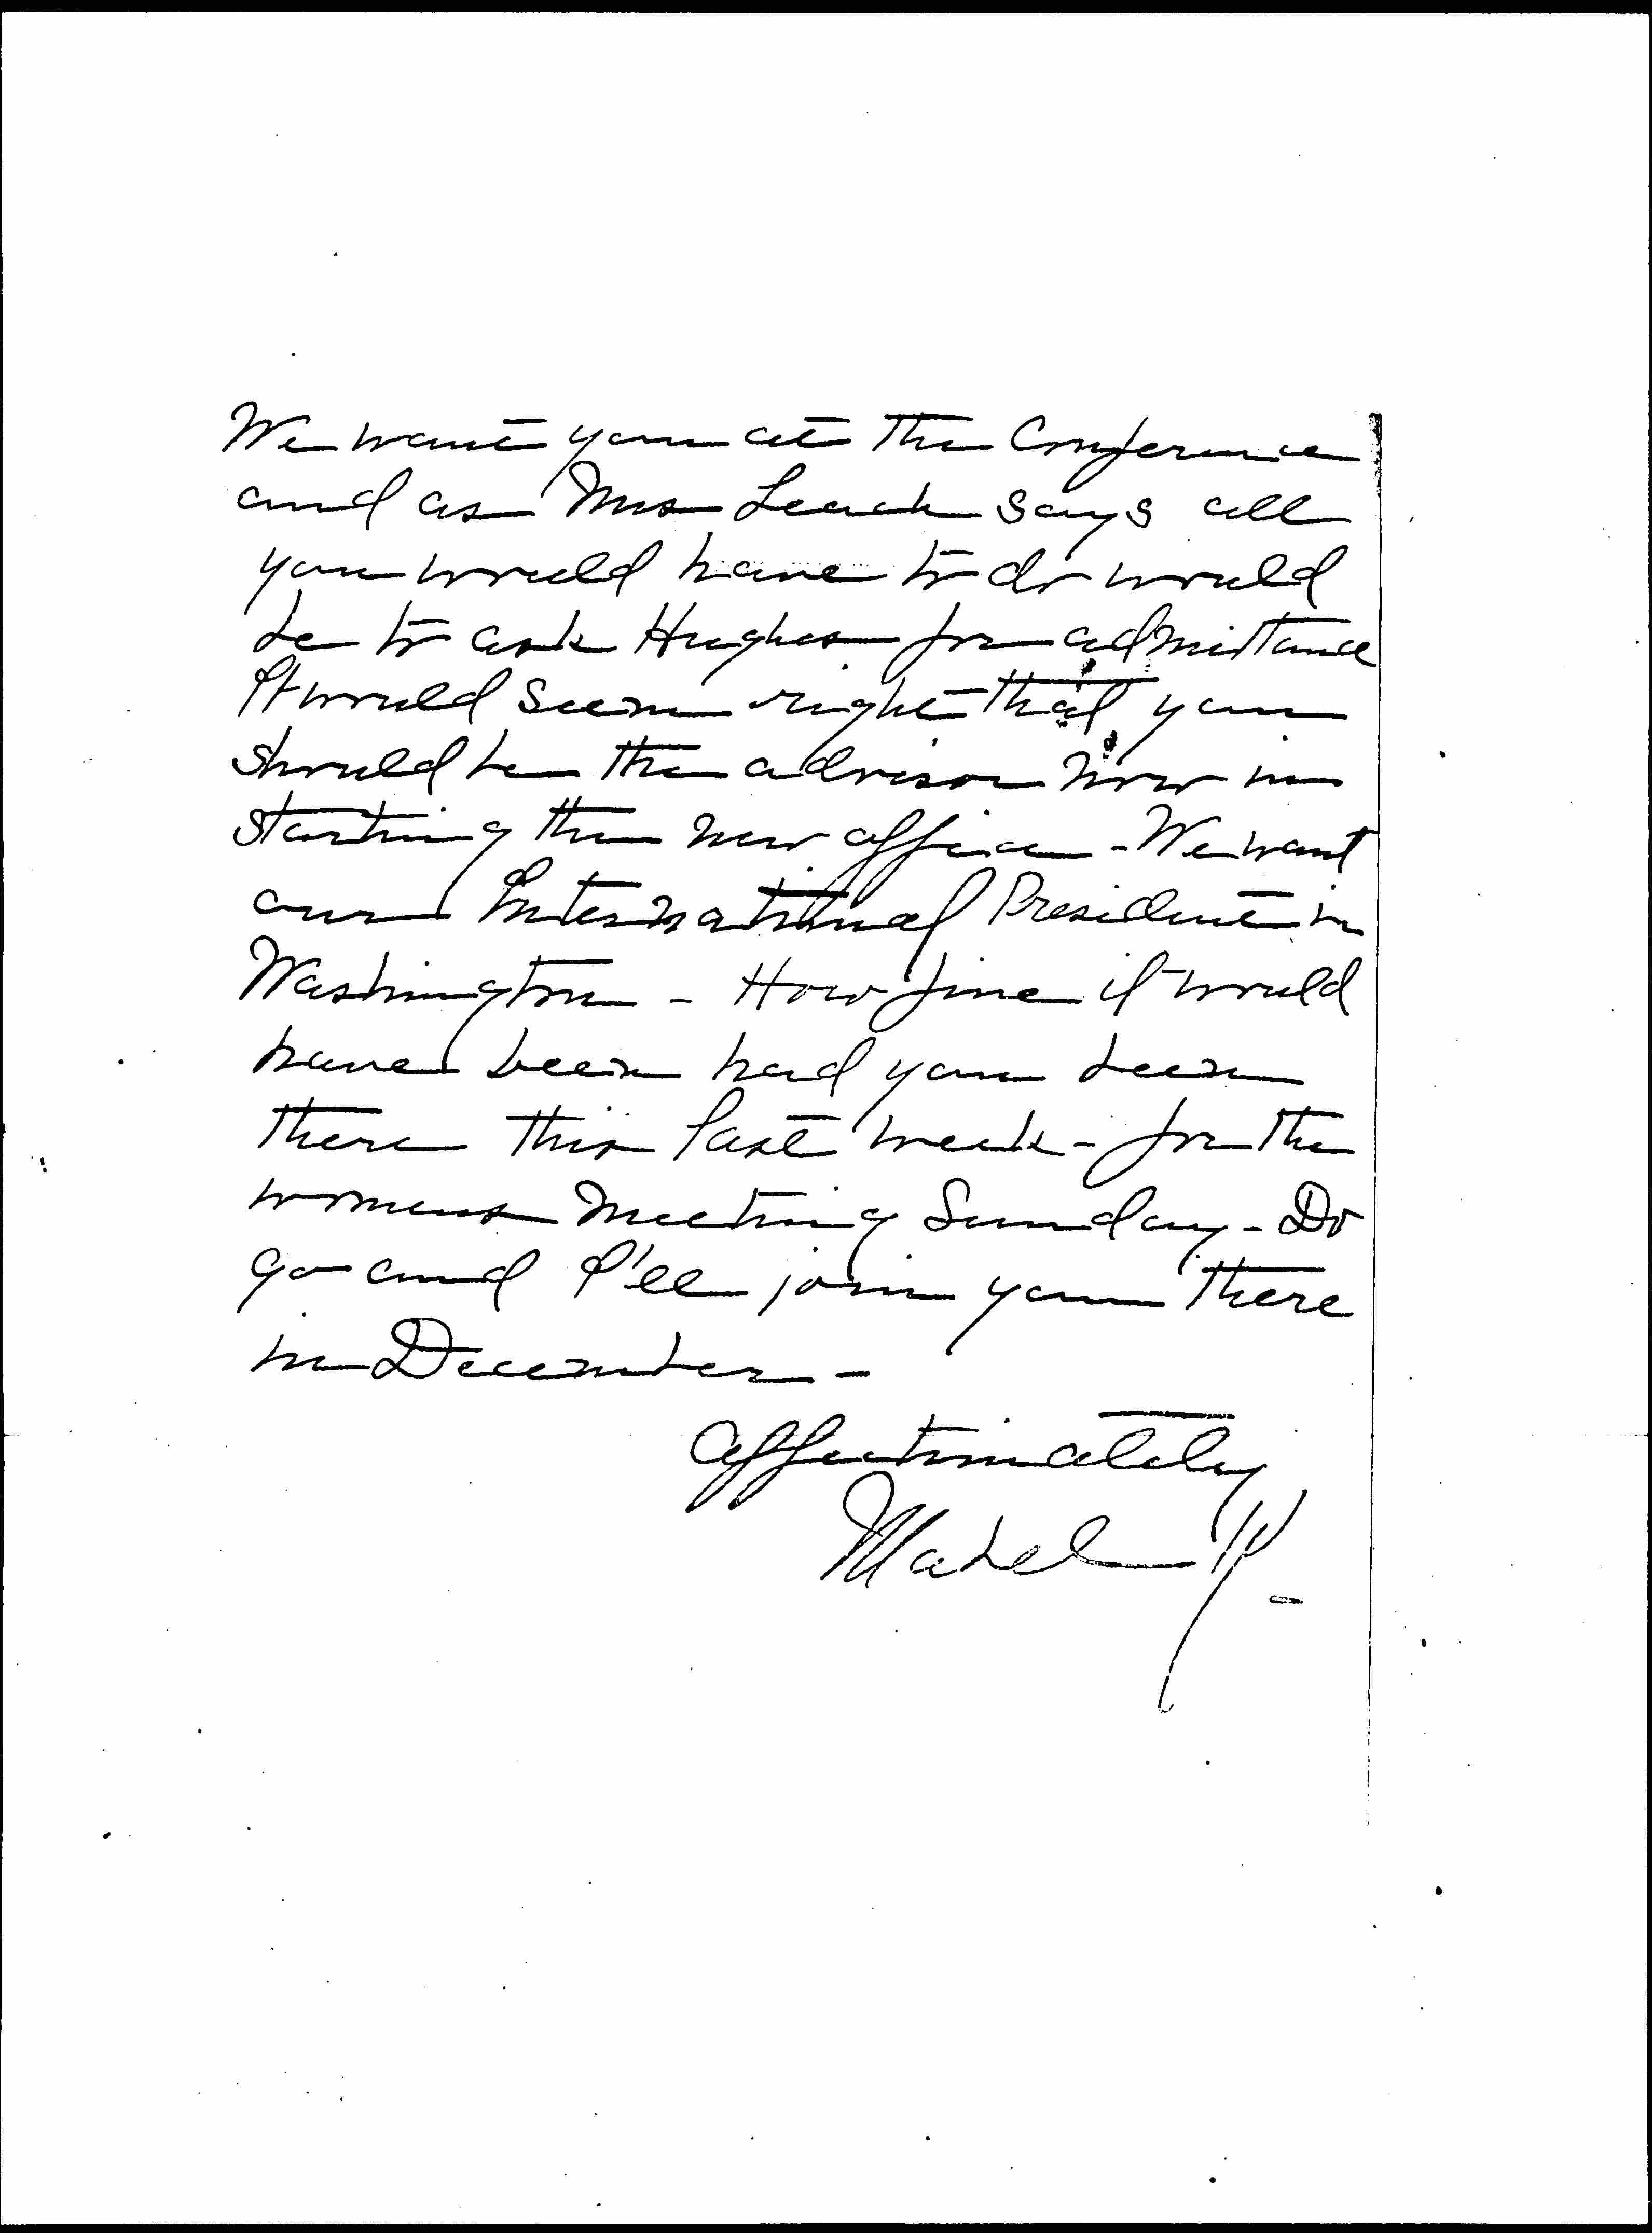 We want you at the Conference
and as Mrs Leach says all
you would have to do would
be to ask Hughes for admittance
It would seem right that you
should be the advisor now in
starting the new office - We want
our International President in
Washington - How fine it would
have been had you been
there this last week - for the
womens meeting Sunday - Do
go and I'll join you there
in December -
Affectionately
Mabel K -